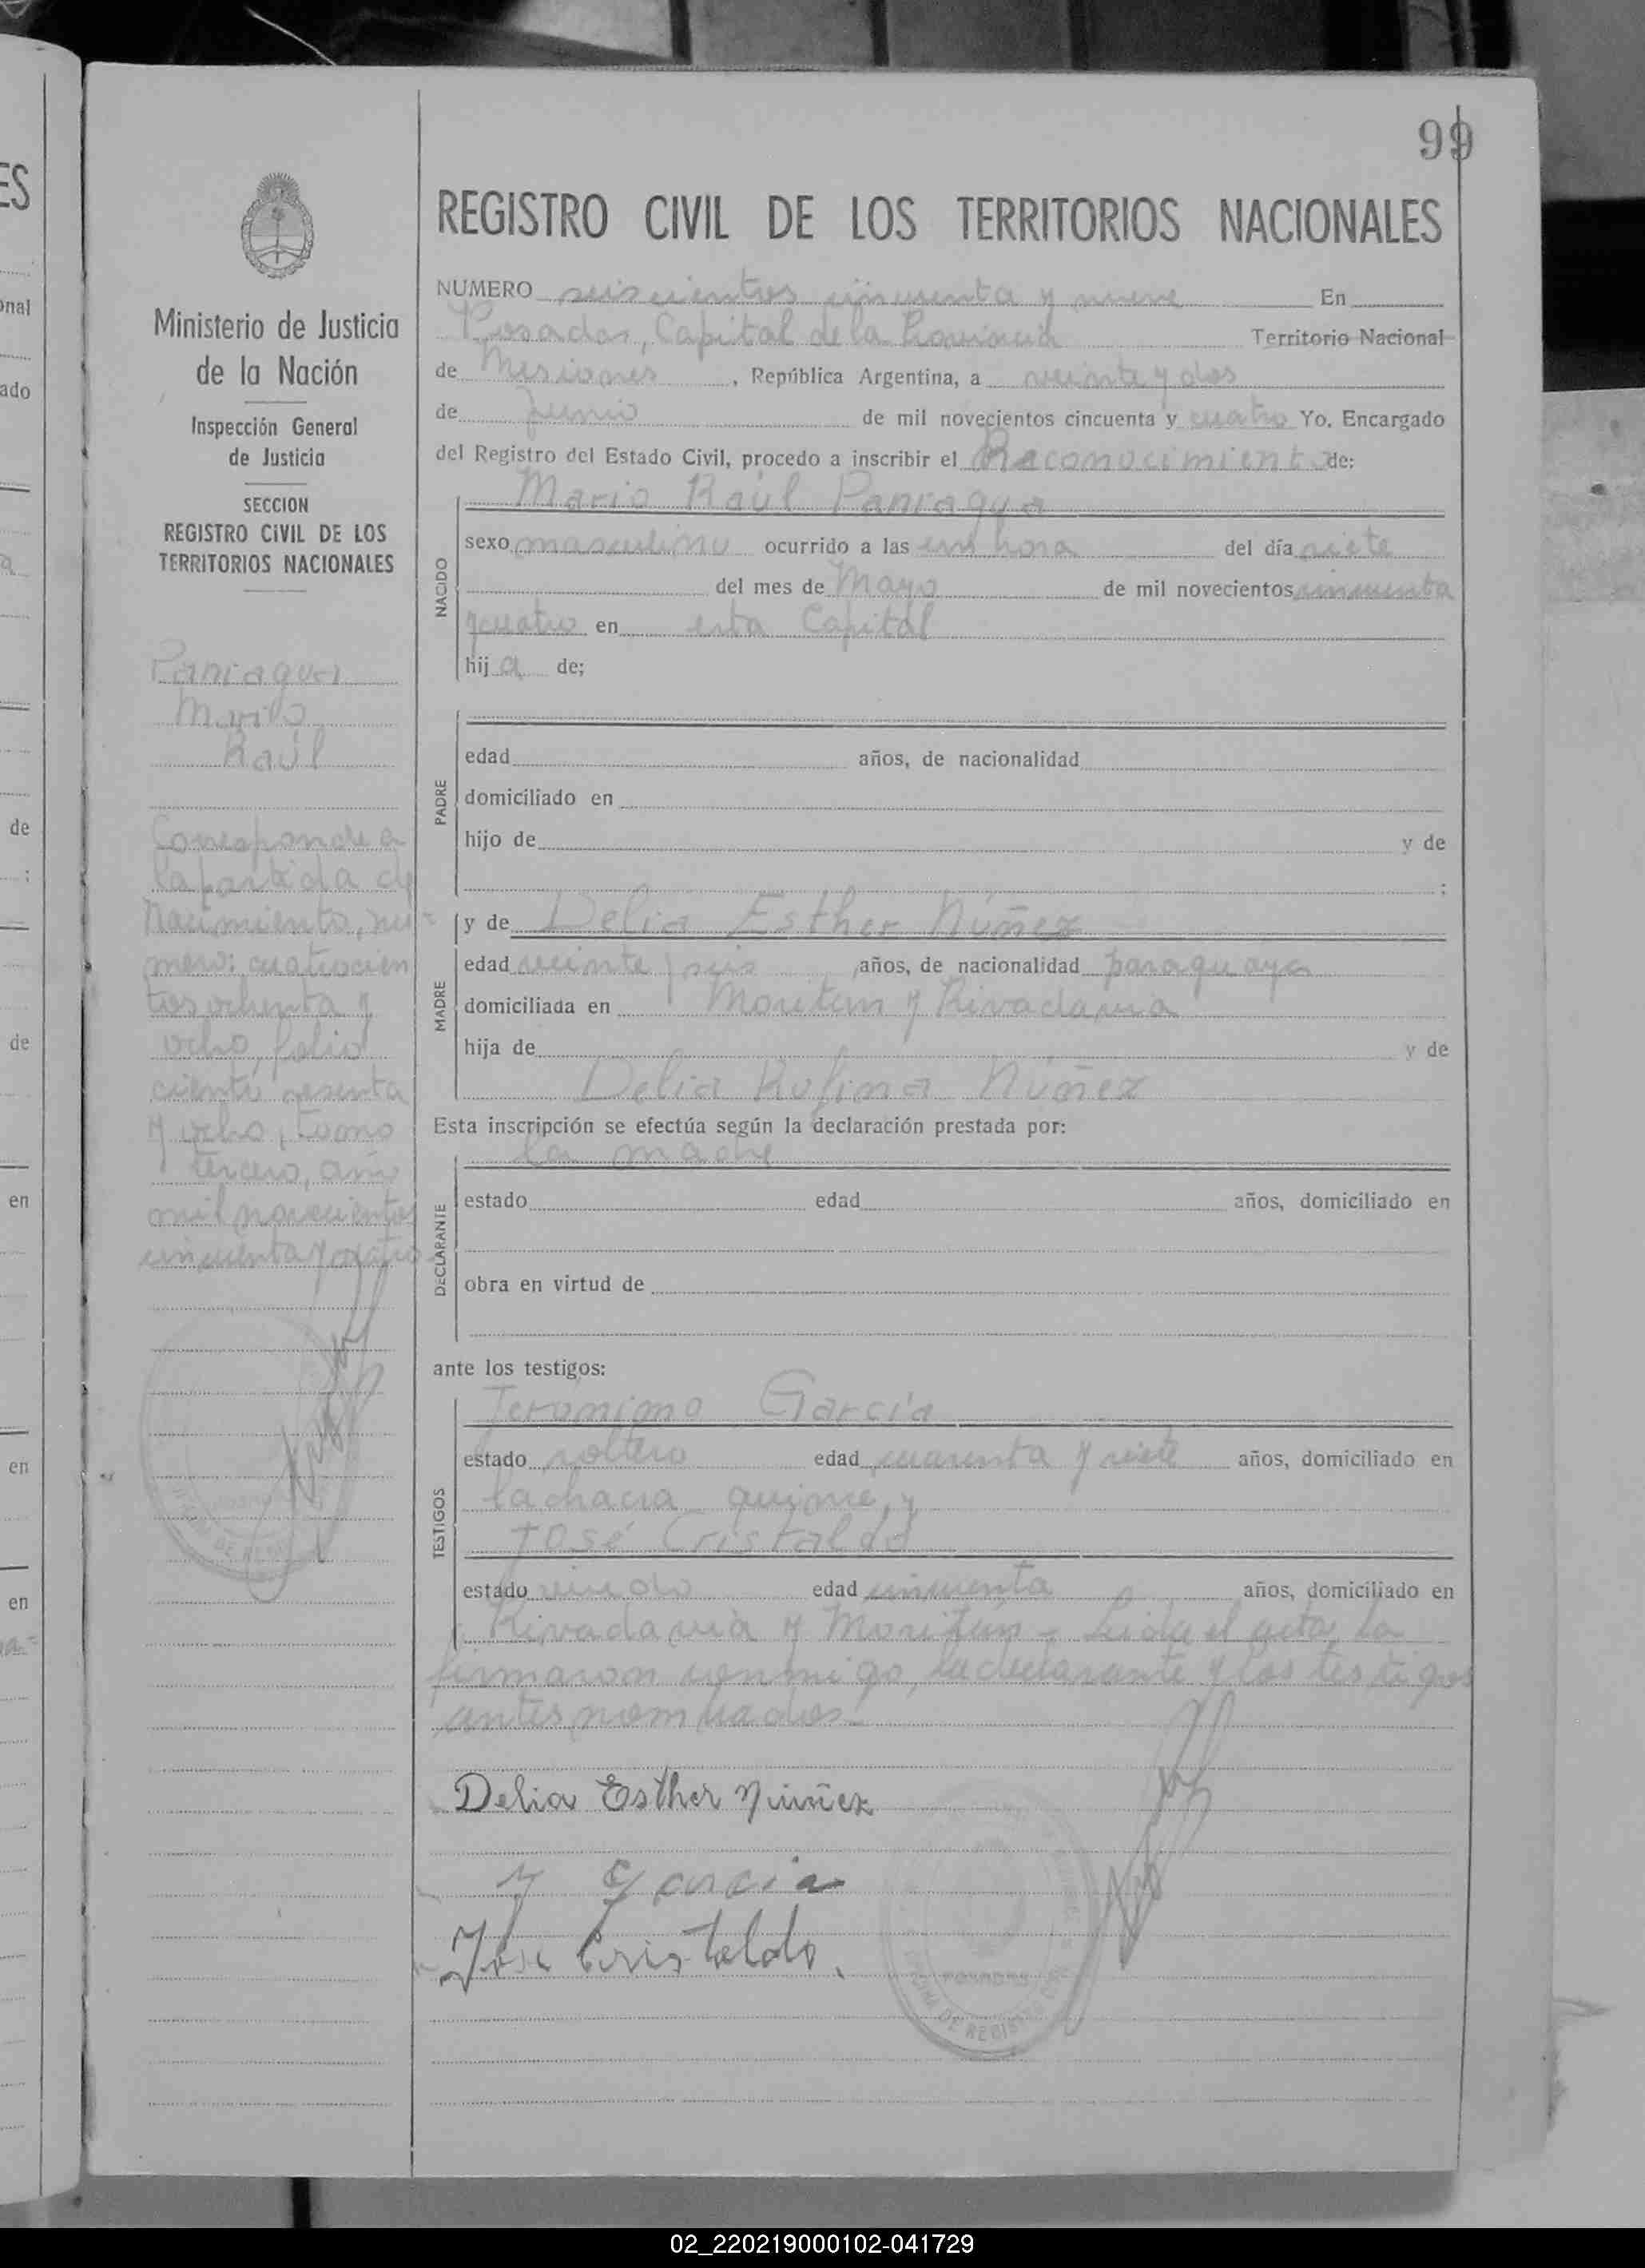 99
REGISTRO CIVIL DE LOS TERRITORIOS NACIONALES
Ministerio de Justicia
de la Nación
Inspección General
de Justicia
SECCION
REGISTRO CIVIL DE LOS
TERRITORIOS NACIONALES
Paniagua
Mario
Raúl
Corresponde a
la partida de
Nacimiento, nu-
mero: cuatrocien
tos ochenta y
ocho, folio
ciento sesenta
y ocho, tomo
tercero, año
mil novecientos
cincuenta y cuatro
NUMERO seiscientos cincuenta y nueve En
Posadas, Capital de la Provincia Territorio Nacional
de Misiones, República Argentina, a veinte y dos
de Junio de mil novecientos cincuenta y cuatro Yo, Encargado
del Registro del Estado Civil, procedo a inscribir el Reconocimiento de:
NACIDO
Mario Raúl Paniagua
sexo masculino ocurrido a las una hora del día siete
del mes de Mayo de mil novecientos cincuenta
y cuatro en esta Capital
hij a de;
PADRE
edad años, de nacionalidad
domiciliado en
hijo de y de
;
y de Delia Esther Núñez
MADRE
edad veinte y seis años, de nacionalidad paraguaya
domiciliada en Moritan y Rivadavia
hija de y de
Delia Rufina Núñez
Esta inscripción se efectúa según la declaración prestada por:
DECLARANTE
la madre
estado edad años, domiciliado en
obra en virtud de
ante los testigos:
TESTIGOS
Jerónimo García
estado soltero edad cuarenta y siete años, domiciliado en
la chacra quince, y
José Cristaldo
estado viudo edad cincuenta años, domiciliado en
Rivadavia y Moritan - Leida el acta, la
firmaron conmigo, la declarante y los testigos
antes nombrados.-
Delia Esther Núñez
J Garcia
Jose Cristaldo.
POSADAS
DE REGISTRO
02_220219000102-041729